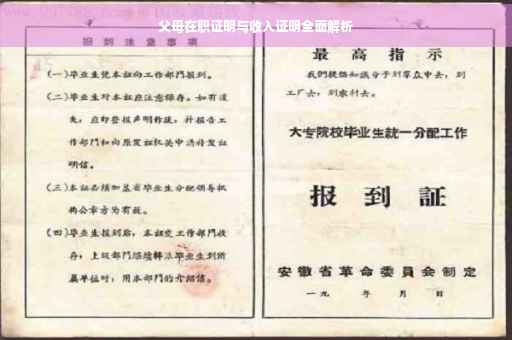 父母在职证明与收入证明全面解析
报到注意事项
(一)毕业生凭本证向工作部門报到。
(二)毕业生对本证应注意保存。如有遗
失,应即登报声明作废,并报告工
作部門和向原发证机关申请补发证
明信。
(三)本证必须加盖省毕业生分配领导机
构公章方为有效。
(四)毕业生报到后,本证交工作部門收
存;上级部門继续转派毕业生到所
属单位时,用本部門的介绍信。
最高指示
我們提倡知识分子到羣众中去,到
工厂去,到农村去。
大专院校毕业生統一分配工作
报到証
安徽省革命委員会制定
一九 年 月 日